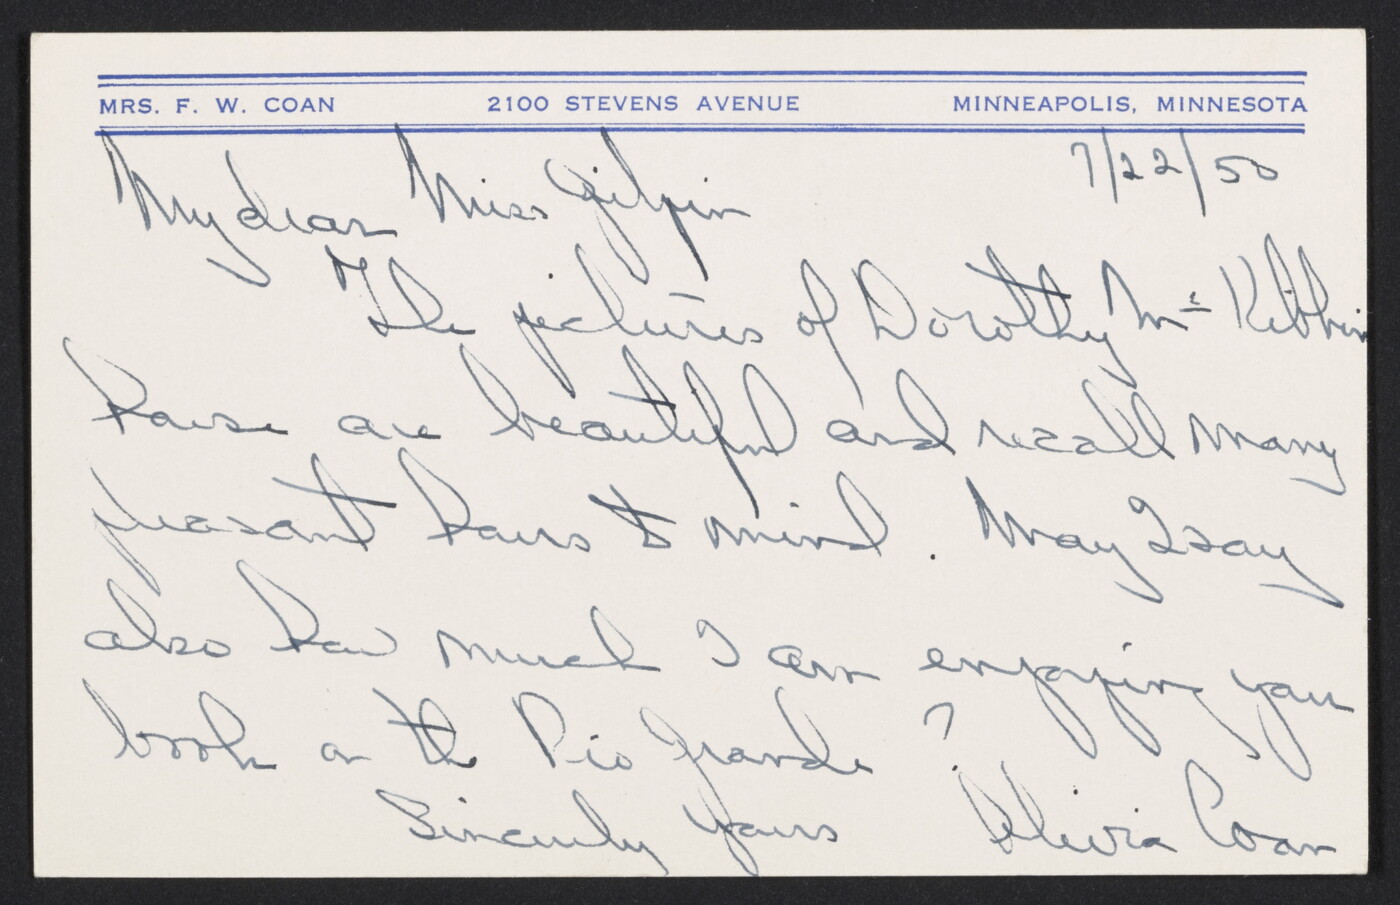 MRS. F. W. COAN 2100 STEVENS AVENUE MINNEAPOLIS, MINNESOTA
7/22/50
My dear Miss Gilpin
The pictures of Dorothy McKibbin
house are beautiful and recall many
pleasant hours to mind. May I say
also how much I am enjoying your
book on the Rio Grande?
Sincerely Yours Olivia Coan